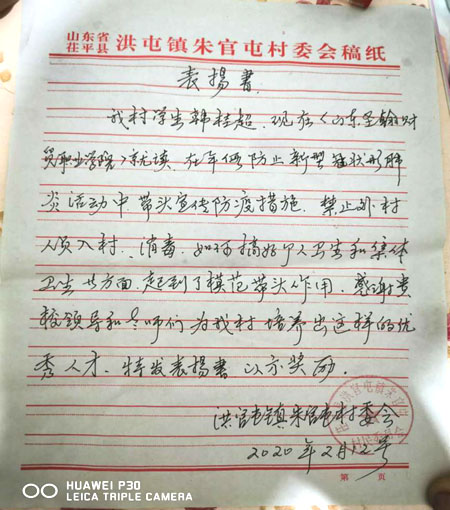 山东省
茌平县 洪屯镇朱官屯村委会稿纸
表扬书
我村学生韩桂超,现在《山东圣翰财
贸职业学院》就读,在年假防止新型冠状形肺
炎活动中,带头宣传防疫措施,禁止外村
人员入村、消毒、如何搞好个人卫生和集体
卫生等方面,起到了模范带头作用,感谢贵
校领导和老师们为我村培养出这样的优
秀人才,特发表扬书以示奖励.
洪官屯镇朱官屯村委会
2020年2月12号
第 页
HUAWEI P30
LEICA TRIPLE CAMERA